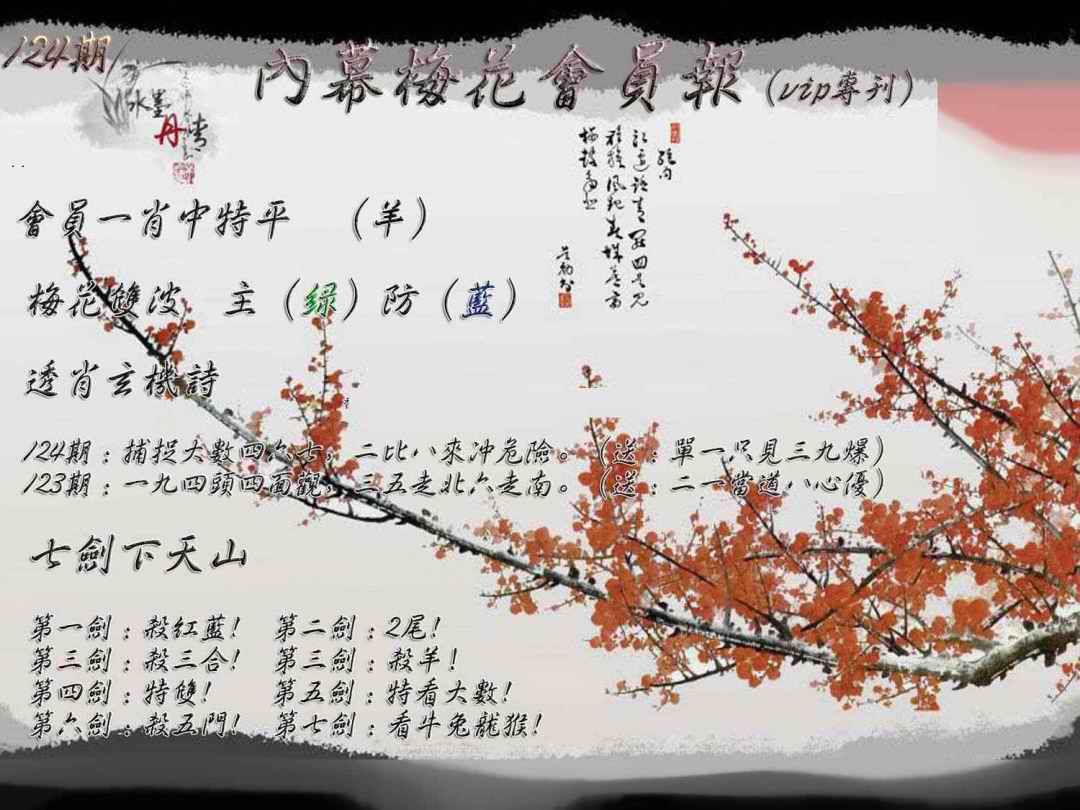 124期
內幕梅花會員報(vip專刊)
水墨
丹青
會員一肖中特平 (羊)
梅花雙波 主(綠)防(藍)
透肖玄機詩
124期：捕捉大數四六七，二比八來沖危險。(送：單一只見三九爆)
123期：一九四頭四面觀，三五走北六走南。(送：二一當道八心優)
七劍下天山
第一劍：殺紅藍! 第二劍：2尾!
第三劍：殺三合! 第三劍：殺羊!
第四劍：特雙! 第五劍：特看大數!
第六劍：殺五門! 第七劍：看牛兔龍猴!